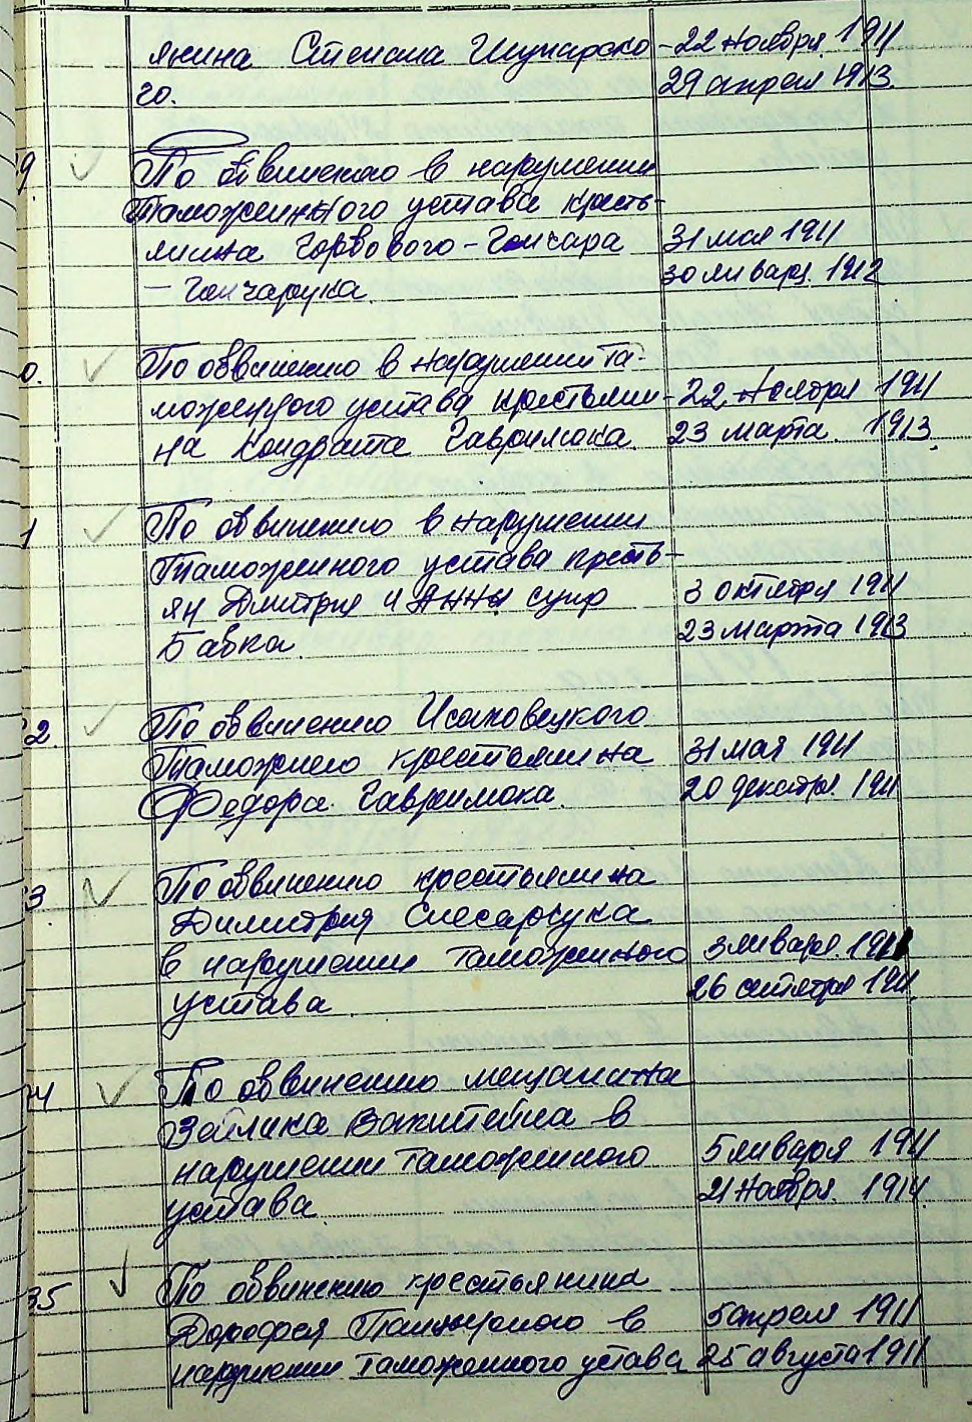 янина Степана Шункарско- 22 ноября 1911
го. 29 апреля 1913.
9. По обвинению в нарушении
Таможенного устава кресть-
янина Горвового-Гончара 31 мая 1911
- Гончарука. 30 января 1912
0. По обвинению в нарушении та-
моженного устава крестьяни- 22 ноября 1911
на Кондрата Гаврилюка 23 марта 1913.
1 По обвинению в нарушении
Таможенного устава кресть-
ян Дмитрия и Анны супр 3 октября 1911
Бавка. 23 марта 1913
2. По обвинению Исаковецкого
Таможнею крестьянина 31 мая 1911
Федора Гаврилюка. 20 декабря 1911
3. По обвинению крестьянина
Димитрия Слесарчука
в нарушении таможенного 3 января 1911
устава. 26 сентября 1911.
4. По обвинению мещанина
Зейлика Вакштейна в
нарушении таможенного 5 января 1911
устава. 21 ноября 1914.
35 По обвинению крестьянина
Дорофея в 5 апреля 1911
нарушении таможенного устава 25 августа 1911